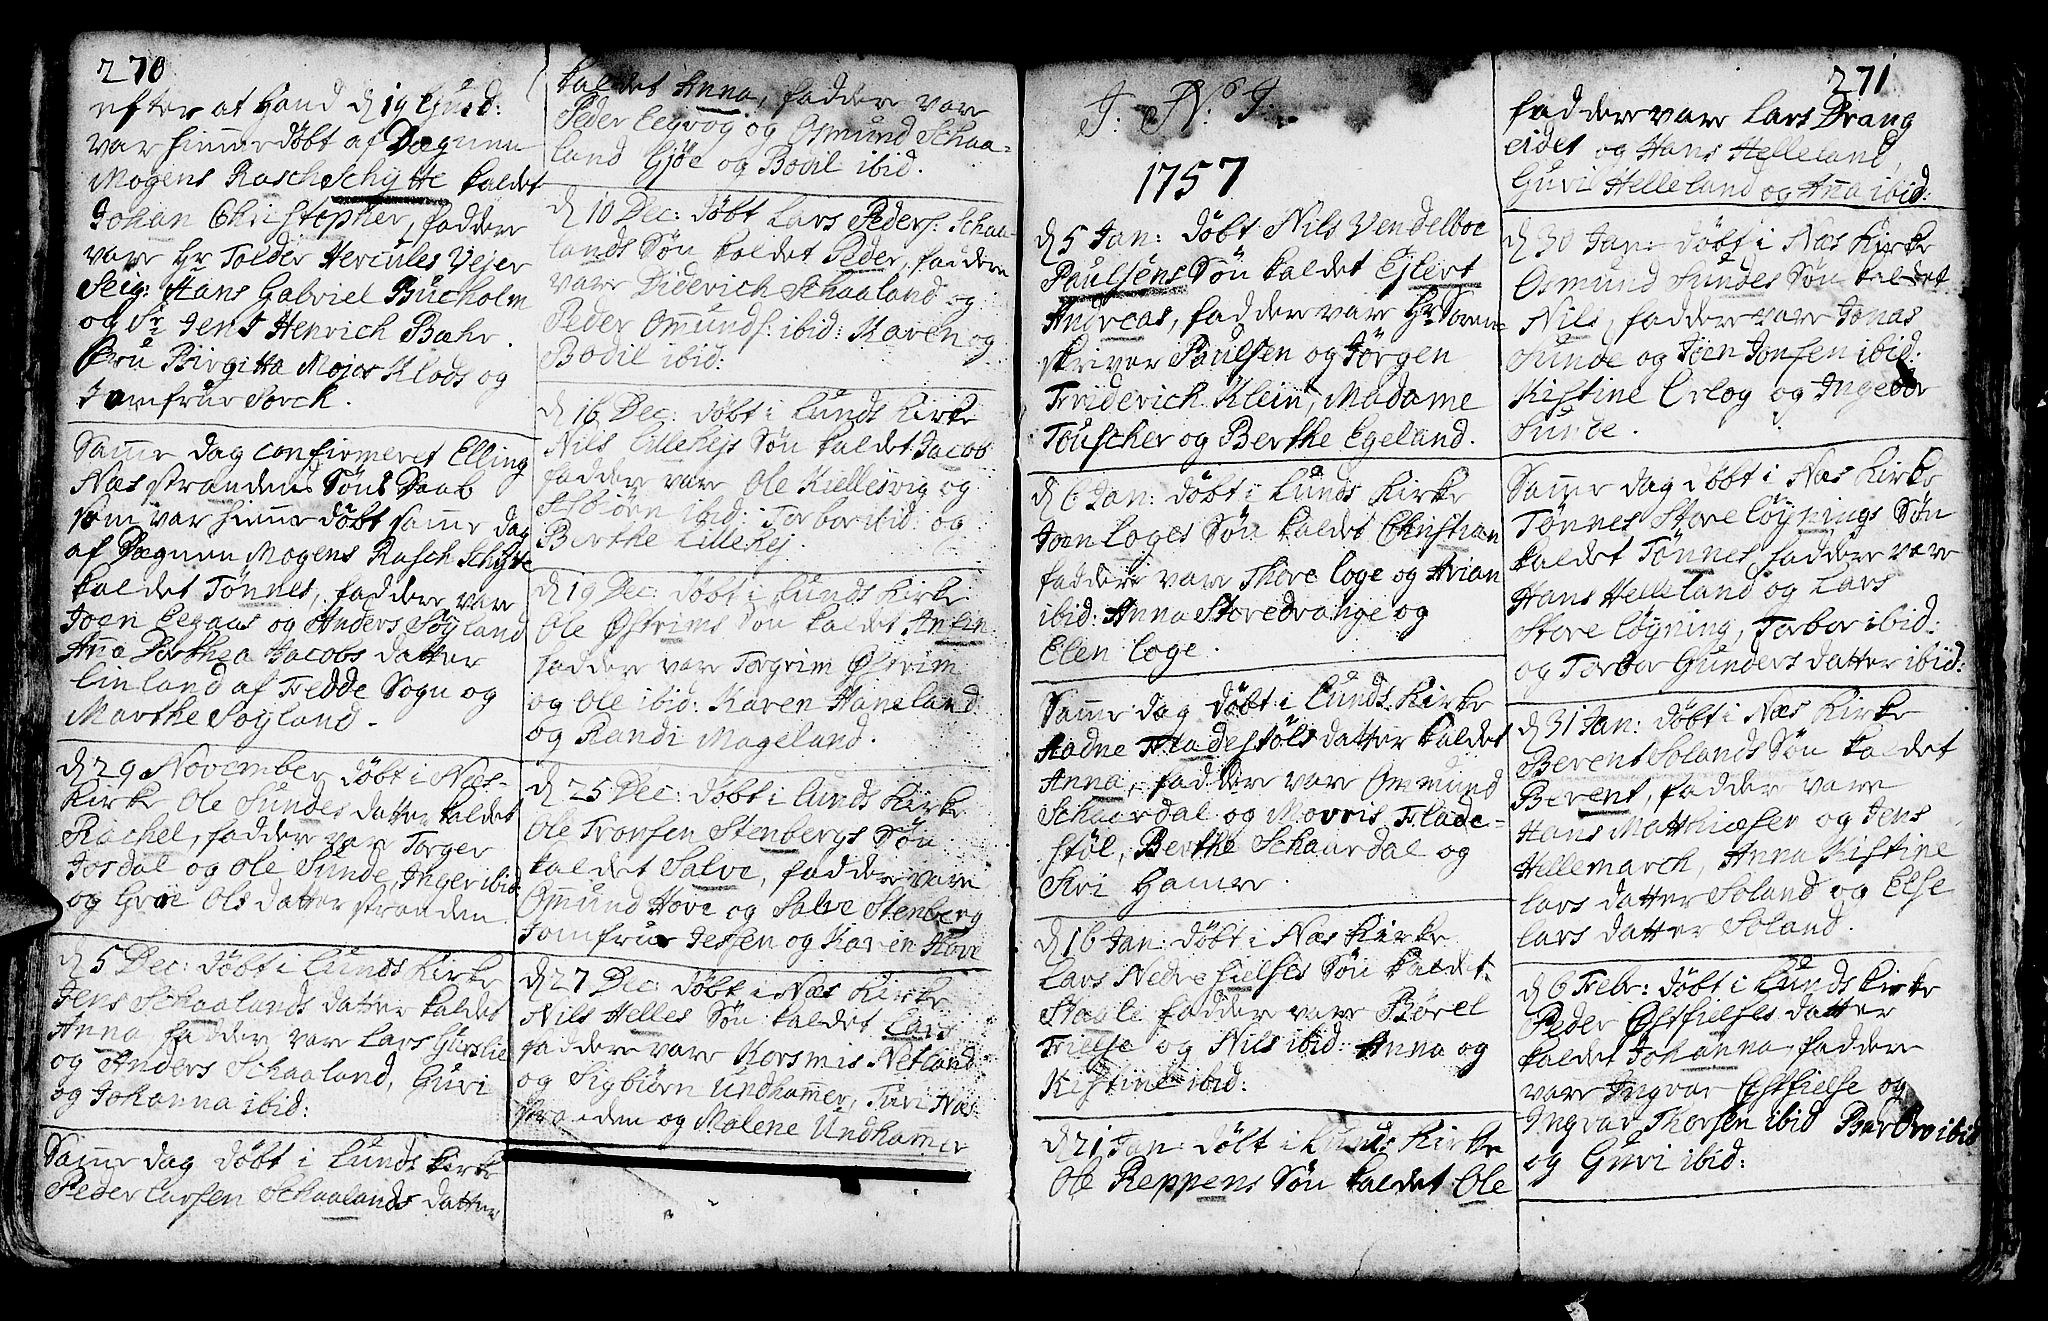 270
efter at hand d 19 hujus:
var hiemme döbt af Degnen
Mogens Rasch Schytte kaldet
Johan Christopher, faddere
vare Hr Tolder Hercules Vejer
Seig: Hans Gabriel Bucholm
og Sr Jens Henrich Bæhr.
Fru Birgitta Mojas Klods og
Jomfrue Sorck.
Samme dag confirmeret Elling
Næsstrandens Söns Daab
som var hiemme döbt samme dag
af Degnen Mogens Rasch Schytte
kaldet Tönnes, faddere vare
Joen Eegaas og Anders Söyland
Anna Dorthea Jacobs datter
Linland af Fedde Sogn og
Marthe Söyland.
d 29 November döbt i Næs
Kirke Ole Sundes datter kaldet
Rachel, faddere vare Torger
Josdal og Ole Sunde, Inger ibid:
og Groe Ols datter stranden
d 5 Dec: döbt i Lunds Kirke
Jens Schaalands datter kaldet
Anna faddere vare Lars Gurslie
og Anders Schaaland, Guri
og Johanna ibid:
Samme dag döbt i Lunds Kirke
Peder Larsen Schaalands datter
kaldet Anna, faddere vare
Peder Eegvog og Osmund Schaa-
land Gjöe og Bodil ibid.
d 10 Dec: döbt Lars Peders: Schaa-
lands Sön kaldet Peder, faddere
vare Diderich Schaaland og
Peder Ommunds: ibid: Karen og
Bodil ibid:
d 16 Dec: döbt i Lunds Kirke
Nils Lillehejs Sön kaldet Jacob
faddere vare Ole Kiellesvig og
Esbiören ibid: Torbor ibid: og
Berthe Lillehej.
d 19 Dec: döbt i Lunds Kirke
Ole Östrims Sön kaldet Anfin
faddere vare Torgrim Östrim
og Ole ibid: Karen Haneland
og Randi Mageland.
d 25 Dec: döbt i Lunds Kirke
Ole Tronsen Stenbergs Sön
kaldet Salve, faddere vare
Ommund Hove og Salve Stenberg
Jomfrue Jessen og Karen Hove
d 27 Dec: döbt i Næs Kirke
Nils Helles Sön kaldet Lars
faddere vare Korsmis Netland
og Sigbiörn Undhammer, Turi Næs
stranden og Malene Undhammer
J: N: J:
1757
d 5 Jan: döbt Nils Vendelboe
Paulsens Sön kaldet Ejlert
Andreas, faddere vare Hr Soren-
skriver Paulsen og Jörgen
Friderich Klein, Madame
Touscher og Berthe Egeland.
d 6 Jan: döbt i Lunds Kirke
Joen Loges Sön kaldet Christian
faddere vare Thore Loge og Arian
ibid: Anna Storedrange og
Elen Loge.
Samme dag döbt i Lunds Kirke
Aadne Fladestöls datter kaldet
Anna, faddere vare Ommund
Schaardal og Movris Flade-
stöl, Berthe Schaardal og
Siri Hamre.
d 16 Jan: döbt i Næs Kirke
Lars Nedre Fielses Sön kaldet
Stogle faddere vare Börel
Fielse og Nils ibid: Anna og
Kistine ibid:
d 21 Jan: döbt i Lunds Kirke
Ole Reppens Sön kaldet Ole
271
faddere vare Lars Drang
eidet og Hans Helleland
Guri Helleland og Anna ibid:
d 30 Jan: döbt i Næs Kirke
Osmund Sundes Sön kaldet
Nils, faddere vare Jonas
Sunde og Joen Jonsen ibid:
Kistine Erlog og Ingebor
Sunde.
Samme dag döbt i Næs Kirke
Tönnes Store Löynings Sön
kaldet Tönnes faddere vare
Hans Helleland og Lars
Store Löyning, Torbor ibid:
og Torbor Gunders datter ibid:
d 31 Jan: döbt i Næs Kirke
Berent Solands Sön kaldet
Berent, faddere vare
Hans Matthiæsen og Jens
Hellemarch, Anna Kistine
Lars datter Soland og Else
Lars datter Soland.
d 6 Febr: döbt i Lunds Kirke
Peder Östfielses datter
kaldet Johanna, faddere
vare Ingvar Östfielse og
Ingvar Thorsen ibid Bar ibid
og Guri ibid: